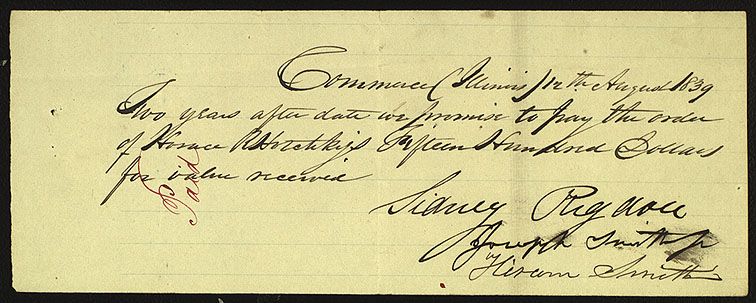 Commerce (Illinois) 12th August 1839
Two years after date we promise to pay the order
of Horace R Hotchkiss Fifteen Hundred Dollars
for value received
Paid
Sidney Rigdon
Joseph Smith Jr
Hiram Smith